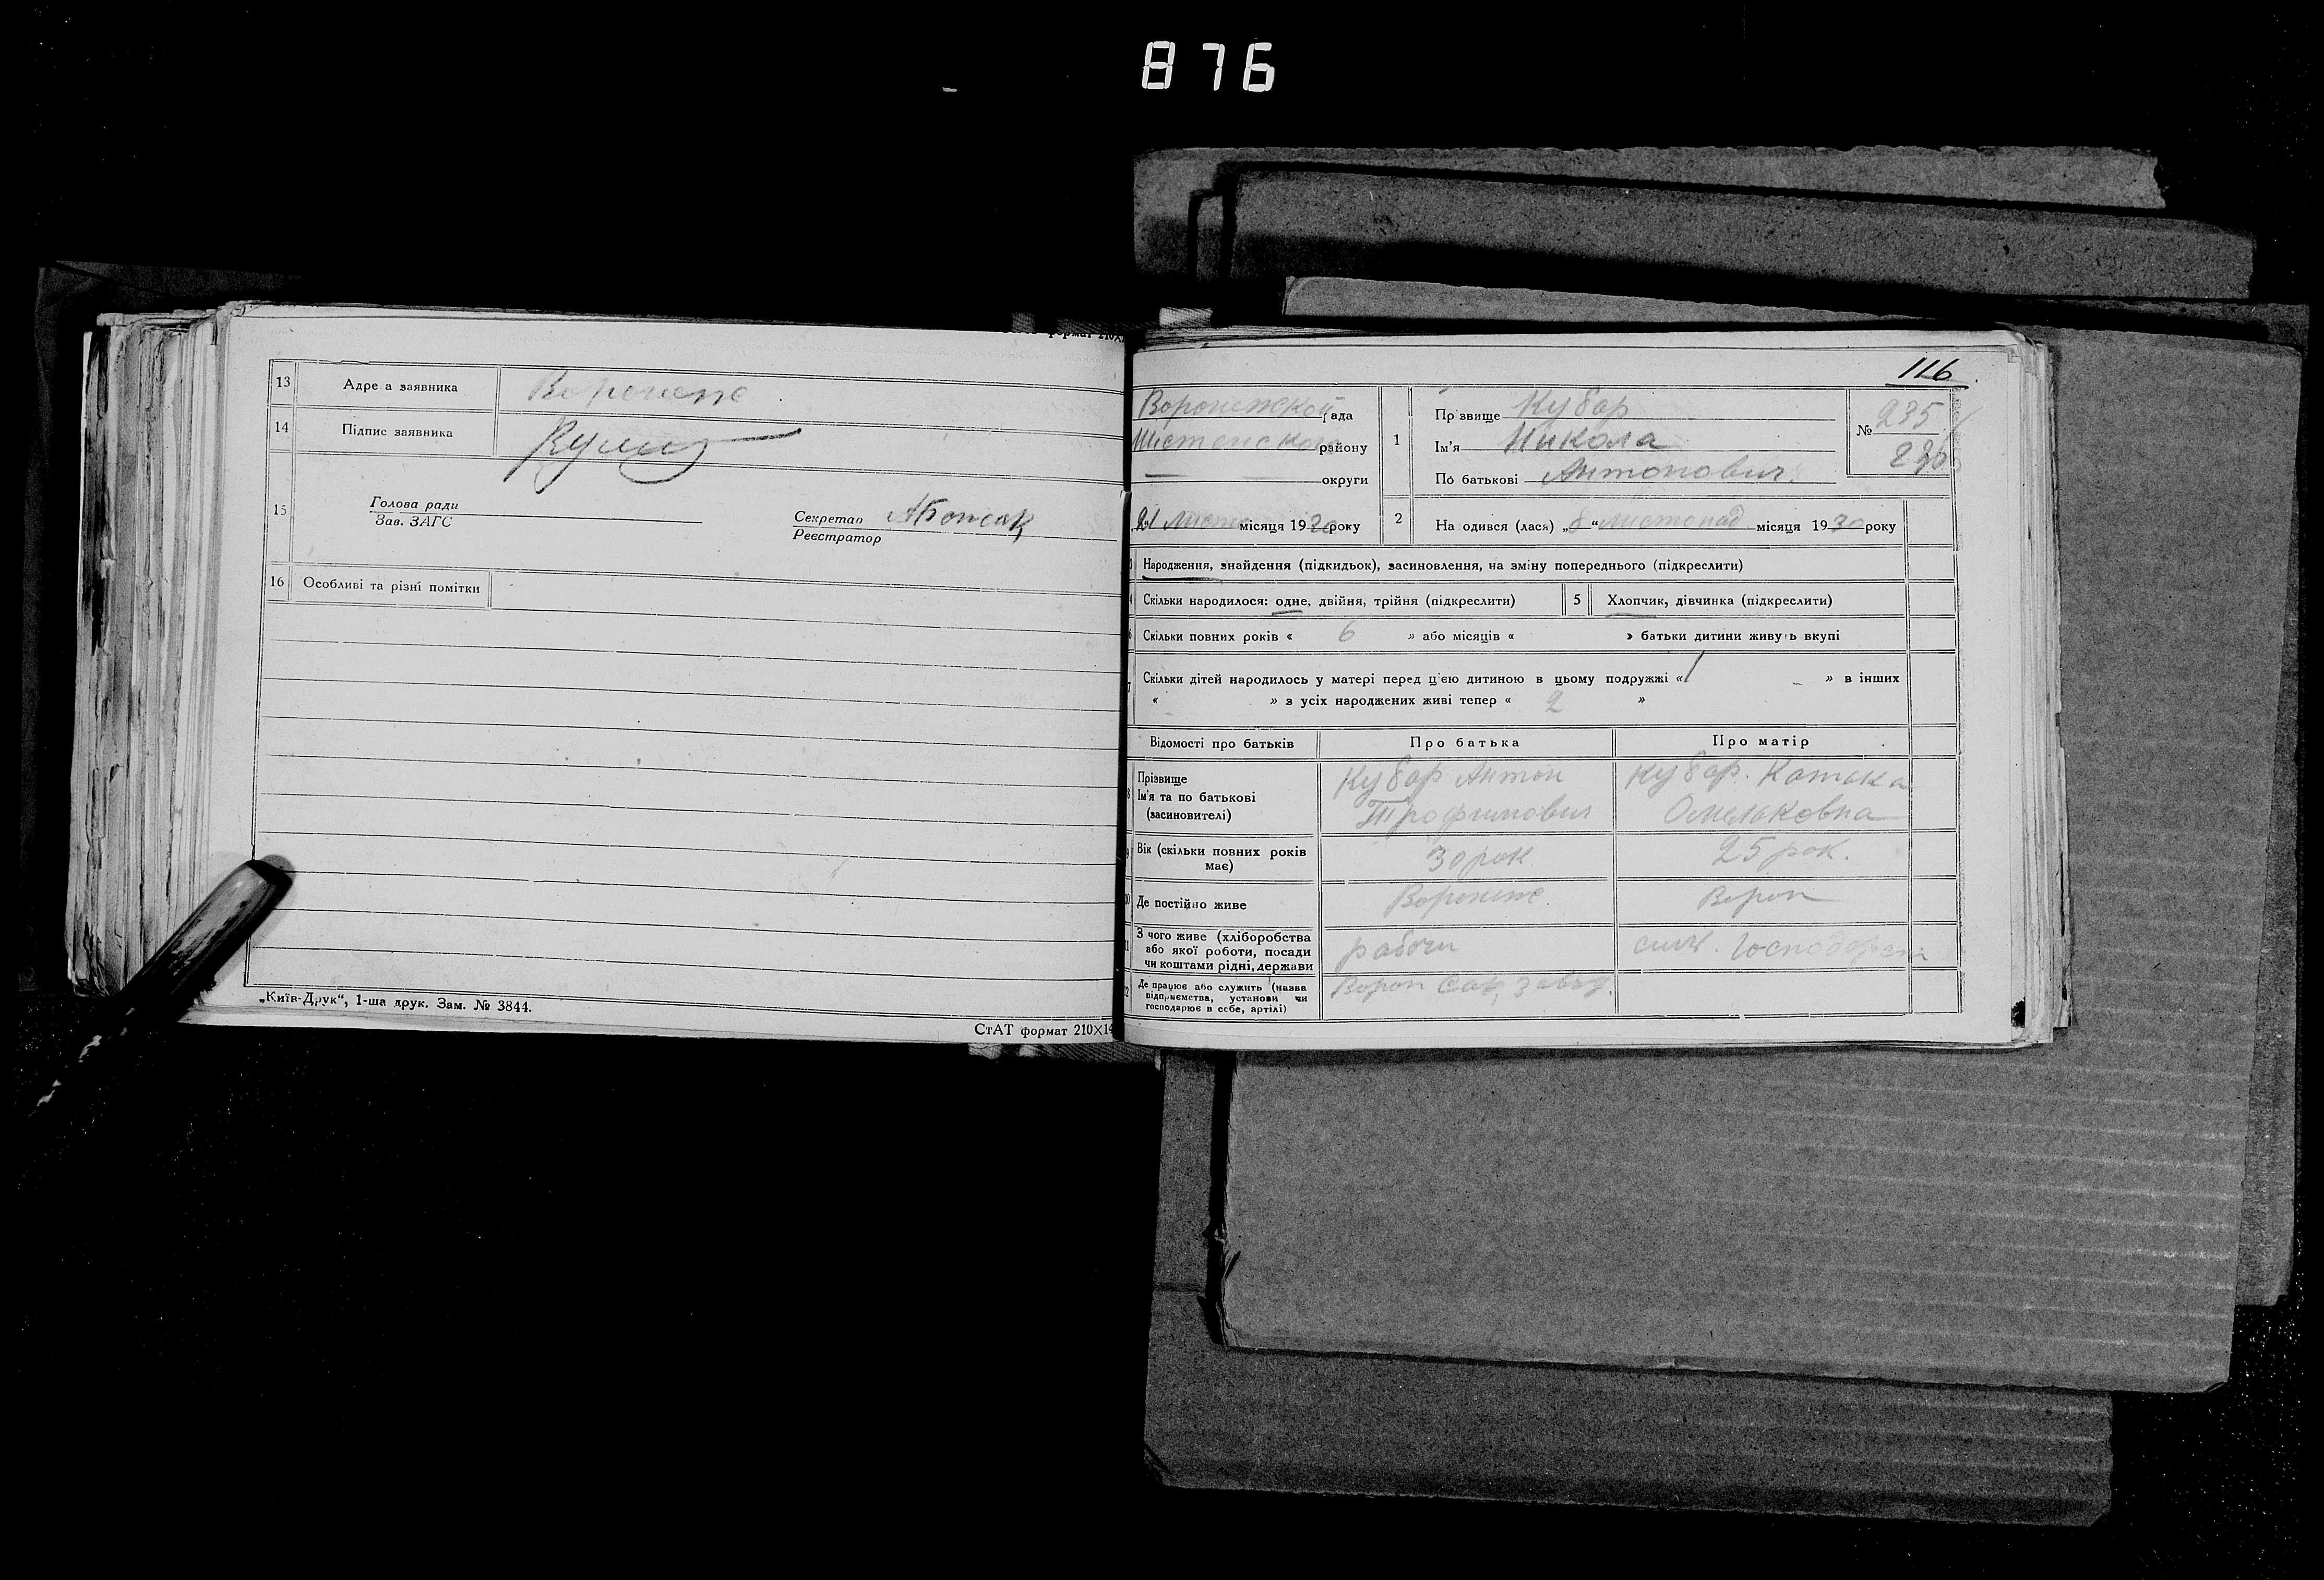 876
формат 210X1
13 Адре а заявника Воронеже
14 Підпис заявника
15 Голова ради
Зав. ЗАГС
Секретар
Реєстратор
16 Особливі та різні помітки
„Київ-Друк“, 1-ша друк. Зам. № 3844.
СтАТ формат 210X14
116
Воронежской рада
району
округи
21 листо місяця 1930 року
1 Пр звище Кубар
Ім'я Микола
По батькові Антонович
№ 235
236
2 На одився (лася) „8“ листопад місяця 1930 року
Народження, знайдення (підкидьок), засиновлення, на зміну попереднього (підкреслити)
Скільки народилося: одне, двійня, трійня (підкреслити) 5 Хлопчик, дівчинка (підкреслити)
6 Скільки повних років « 6 » або місяців « » батьки дитини живуть вкупі
7 Скільки дітей народилось у матері перед ц'єю дитиною в цьому подружжі «1 » в інших
« » з усіх народжених живі тепер « 2 »
Відомості про батьків Про батька Про матір
8 Прізвище
Ім'я та по батькові
(засиновителі)
Кубар Антон
Трофимович
Кубар.
Омельковна
9 Вік (скільки повних років
має)
30 рок.
25 рок.
Де постійно живе Воронеже. Ворон
З чого живе (хліборобства
або якої роботи, посади
чи коштами рідні, держави
рабочи
Господарст
Де працює або служить (назва
підприємства, установи чи
господарює в себе, артілі)
Ворон Сах завод.